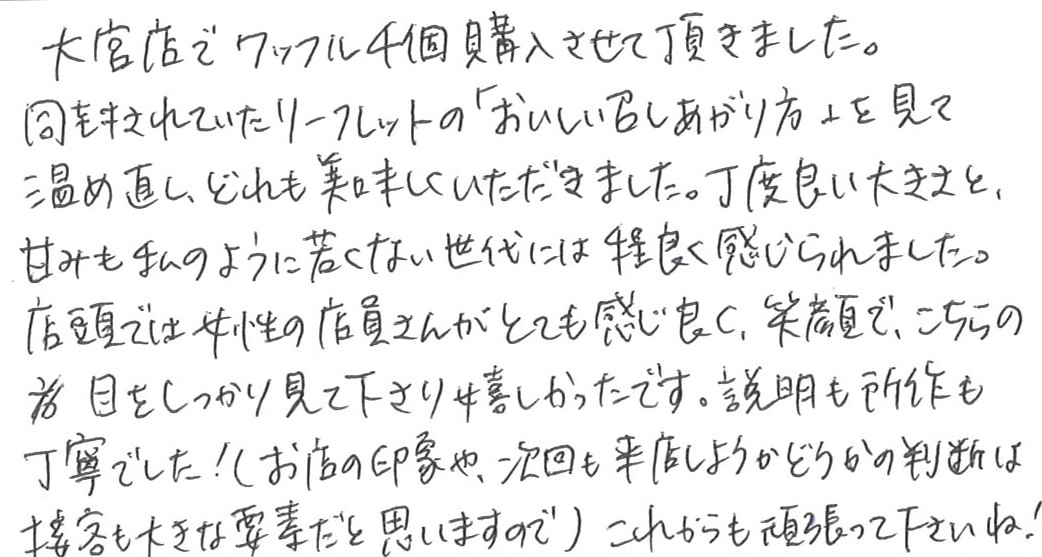 大宮店でワッフル4個購入させて頂きました。
同封されていたリーフレットの「おいしい召しあがり方」を見て
温め直し、どれも美味しくいただきました。丁度良い大きさと、
甘みも私のように若くない世代には程良く感じられました。
店頭では女性の店員さんがとても感じ良く、笑顔で、こちらの
目をしっかり見て下さり嬉しかったです。説明も所作も
丁寧でした！(お店の印象や、次回も来店しようかどうかの判断は
接客も大きな要素だと思いますので) これからも頑張って下さいね！